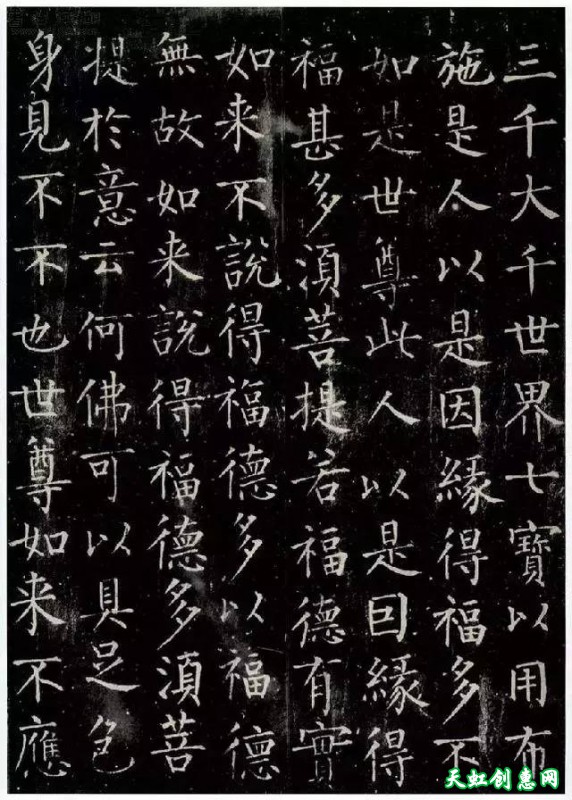 三千大千世界七寶以用布
施是人以是因緣得福多不
如是世尊此人以是因緣得
福甚多須菩提若福德有實
如来不說得福德多以福德
無故如来說得福德多須菩
提於意云何佛可以具足色
身見不不也世尊如来不應
天虹创惠网